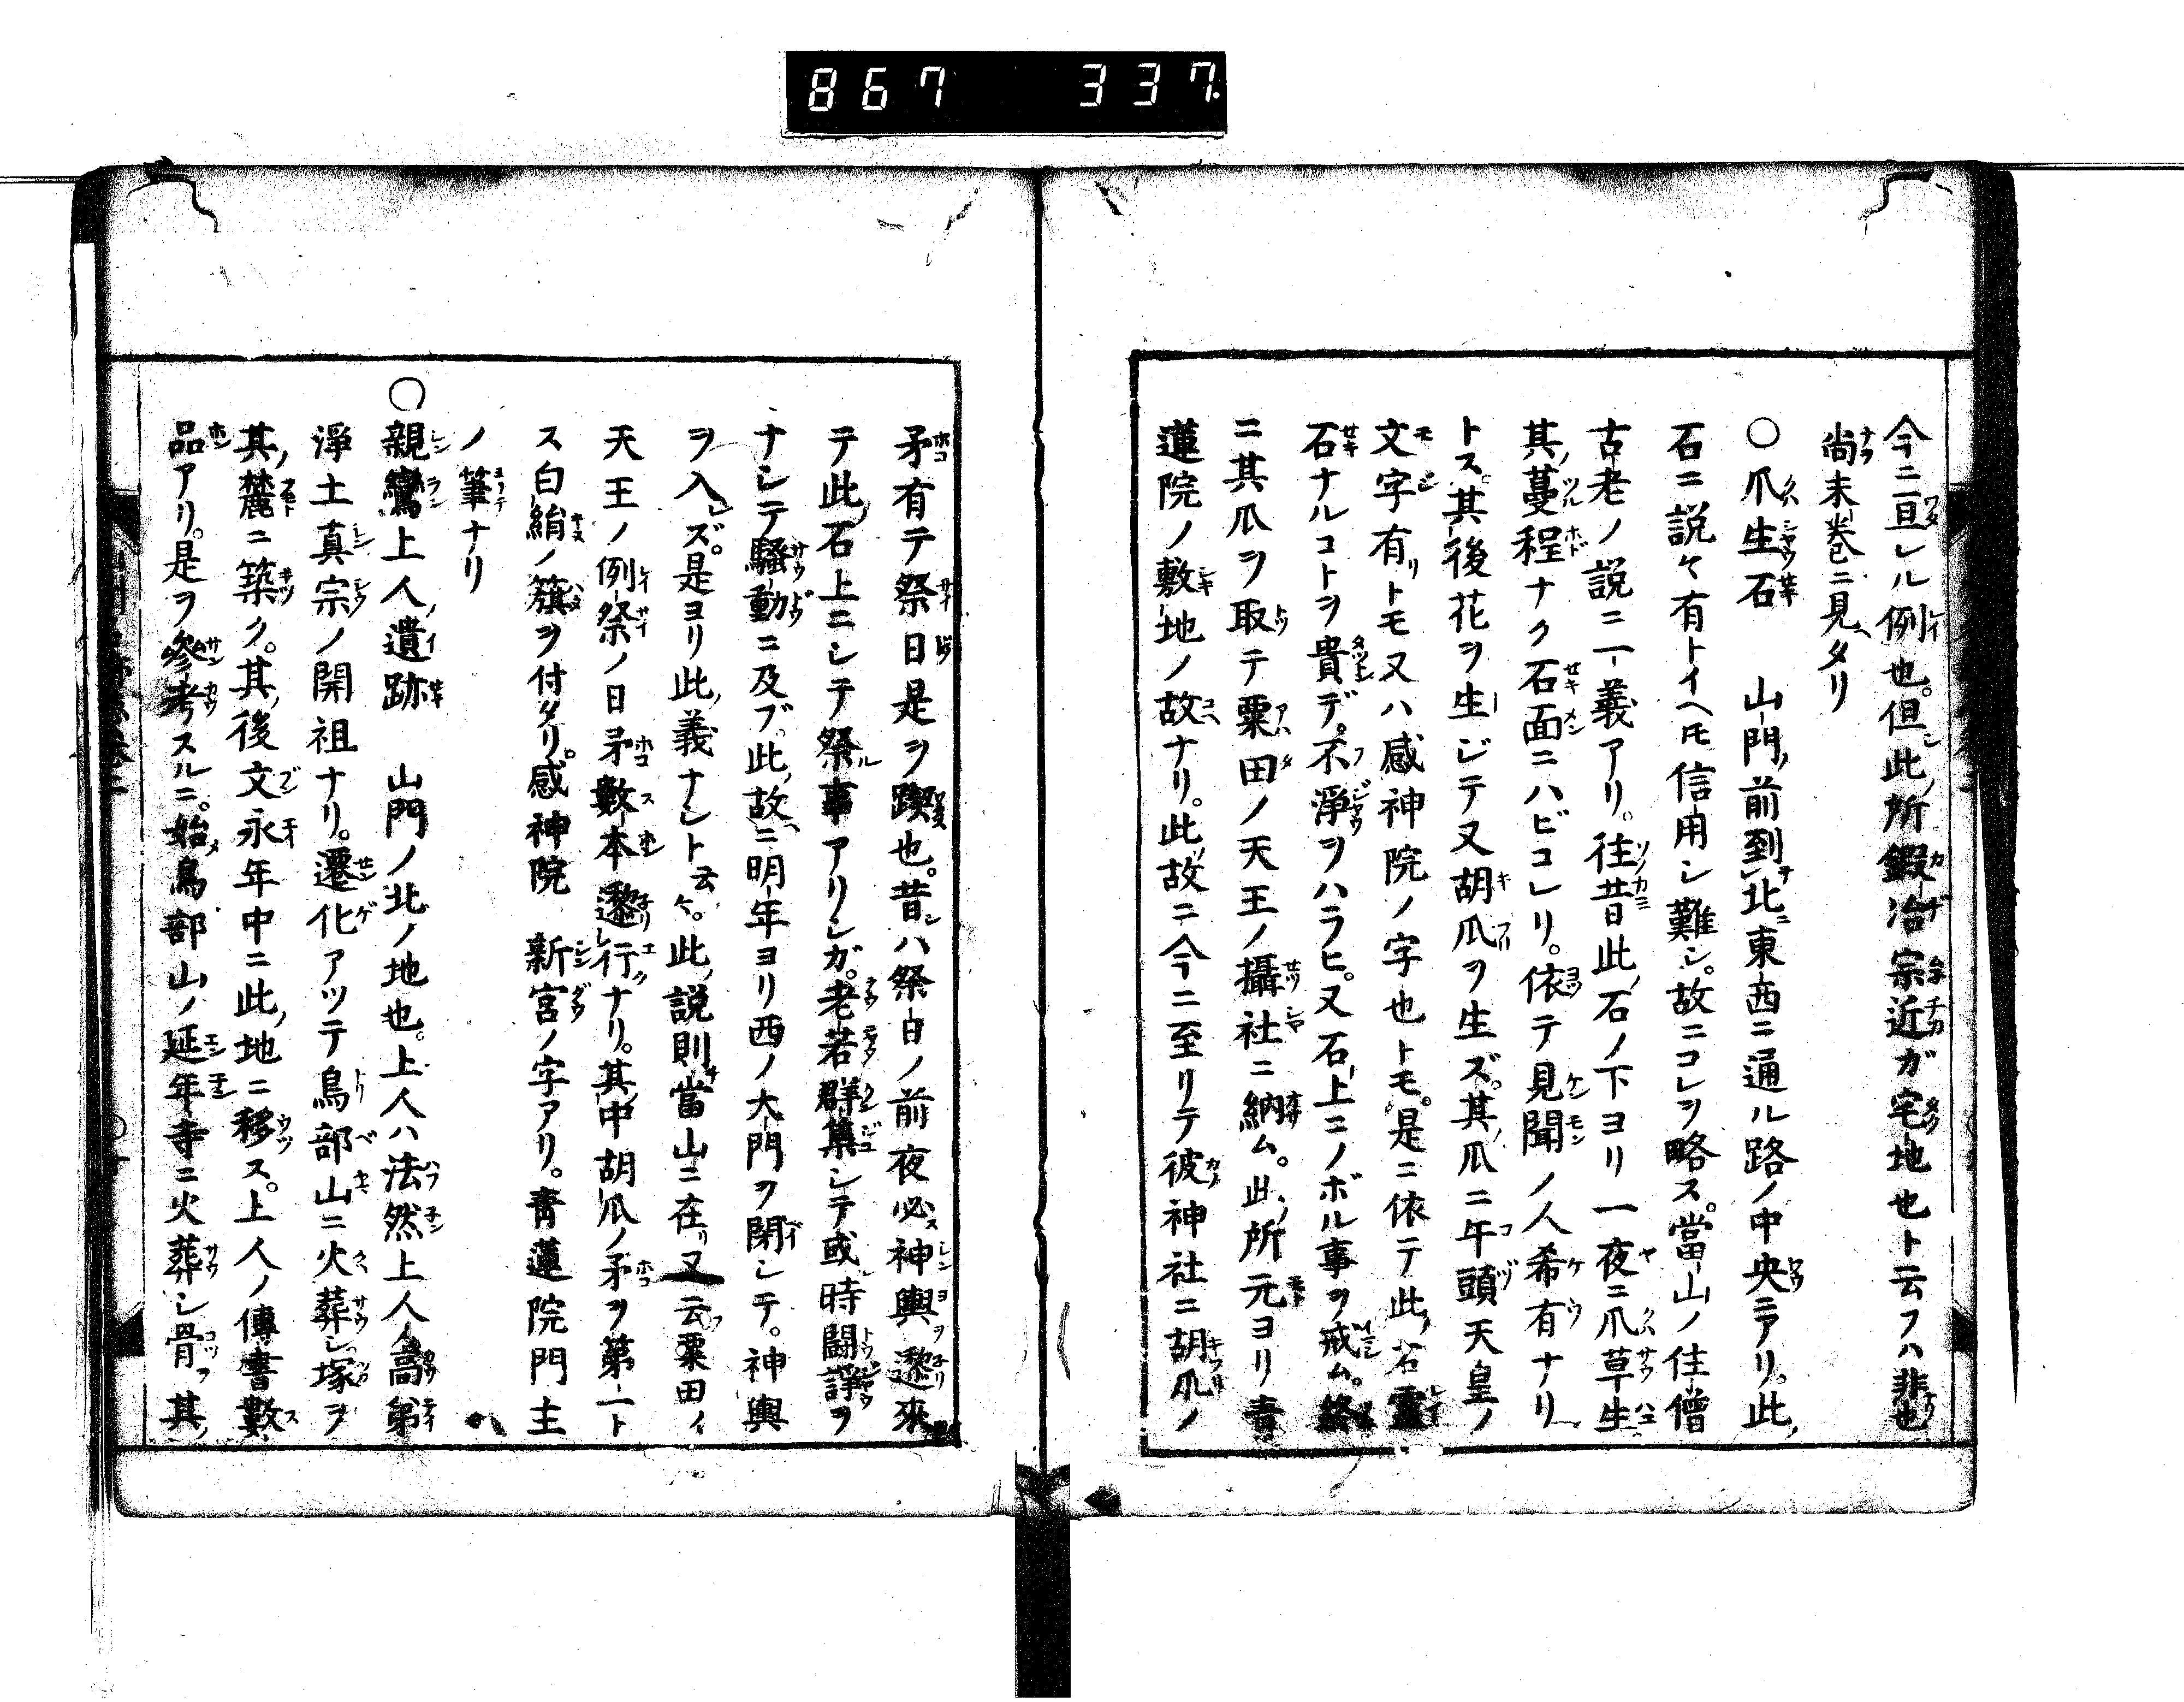 867 337
今ニ亘レル例也。但此所鍛冶宗近ガ宅地也ト云フハ非也
尚末巻ニ見ヘタリ
○爪生石 山門ノ前到北ニ東西ニ通ル路ノ中央ニアリ。此
石ニ説々有トイヘ𪜈信用シ難シ。故ニコレヲ略ス。當山ノ住僧
古老ノ説ニ一義アリ。往昔此石ノ下ヨリ一夜ニ爪草生
其蔓程ナク石面ニハビコレリ。依テ見聞ノ人希有ナリ
トス。其後花ヲ生ジテ又胡瓜ヲ生ズ。其瓜ニ午頭天皇ノ
文字有リトモ又ハ感神院ノ字也トモ。是ニ依テ此石霊
石ナルコトヲ貴デ。不淨ヲハラヒ。又石上ニノボル事ヲ戒ム。終
ニ其瓜ヲ取テ粟田ノ天王ノ攝社ニ納ム。此所元ヨリ青
蓮院ノ敷地ノ故ナリ。此故ニ今ニ至リテ彼神社ニ胡瓜ノ
矛有テ祭日是ヲ踟也。昔シハ祭日ノ前夜必ス神輿ヲ邌來
テ此石上ニシテ祭ル事アリシガ。老若群集シテ或時闘諍ヲ
ナシテ騒動ニ及ブ。此故ニ明年ヨリ西ノ大門ヲ閉シテ。神輿
ヲ入レズ。是ヨリ此義ナシト云々。此説則當山ニ在リ又云フ粟田ノ
天王ノ例祭ノ日矛數本邌行ナリ。其中胡瓜ノ矛ヲ第一ト
ス白絹ノ籏ヲ付タリ。感神院 新宮ノ字アリ。青蓮院門主
ノ筆ナリ
○親鸞上人ノ遺跡 山門ノ北ノ地也。上人ハ法然上人ノ高弟
淨土真宗ノ開祖ナリ。遷化アツテ鳥部山ニ火葬シ塚ヲ
其麓ニ築ク。其後文永年中ニ此地ニ移ス。上人ノ傳書數
品アリ。是ヲ參考スルニ。始メ鳥部山ノ延年寺ニ火葬シ骨ヲ其